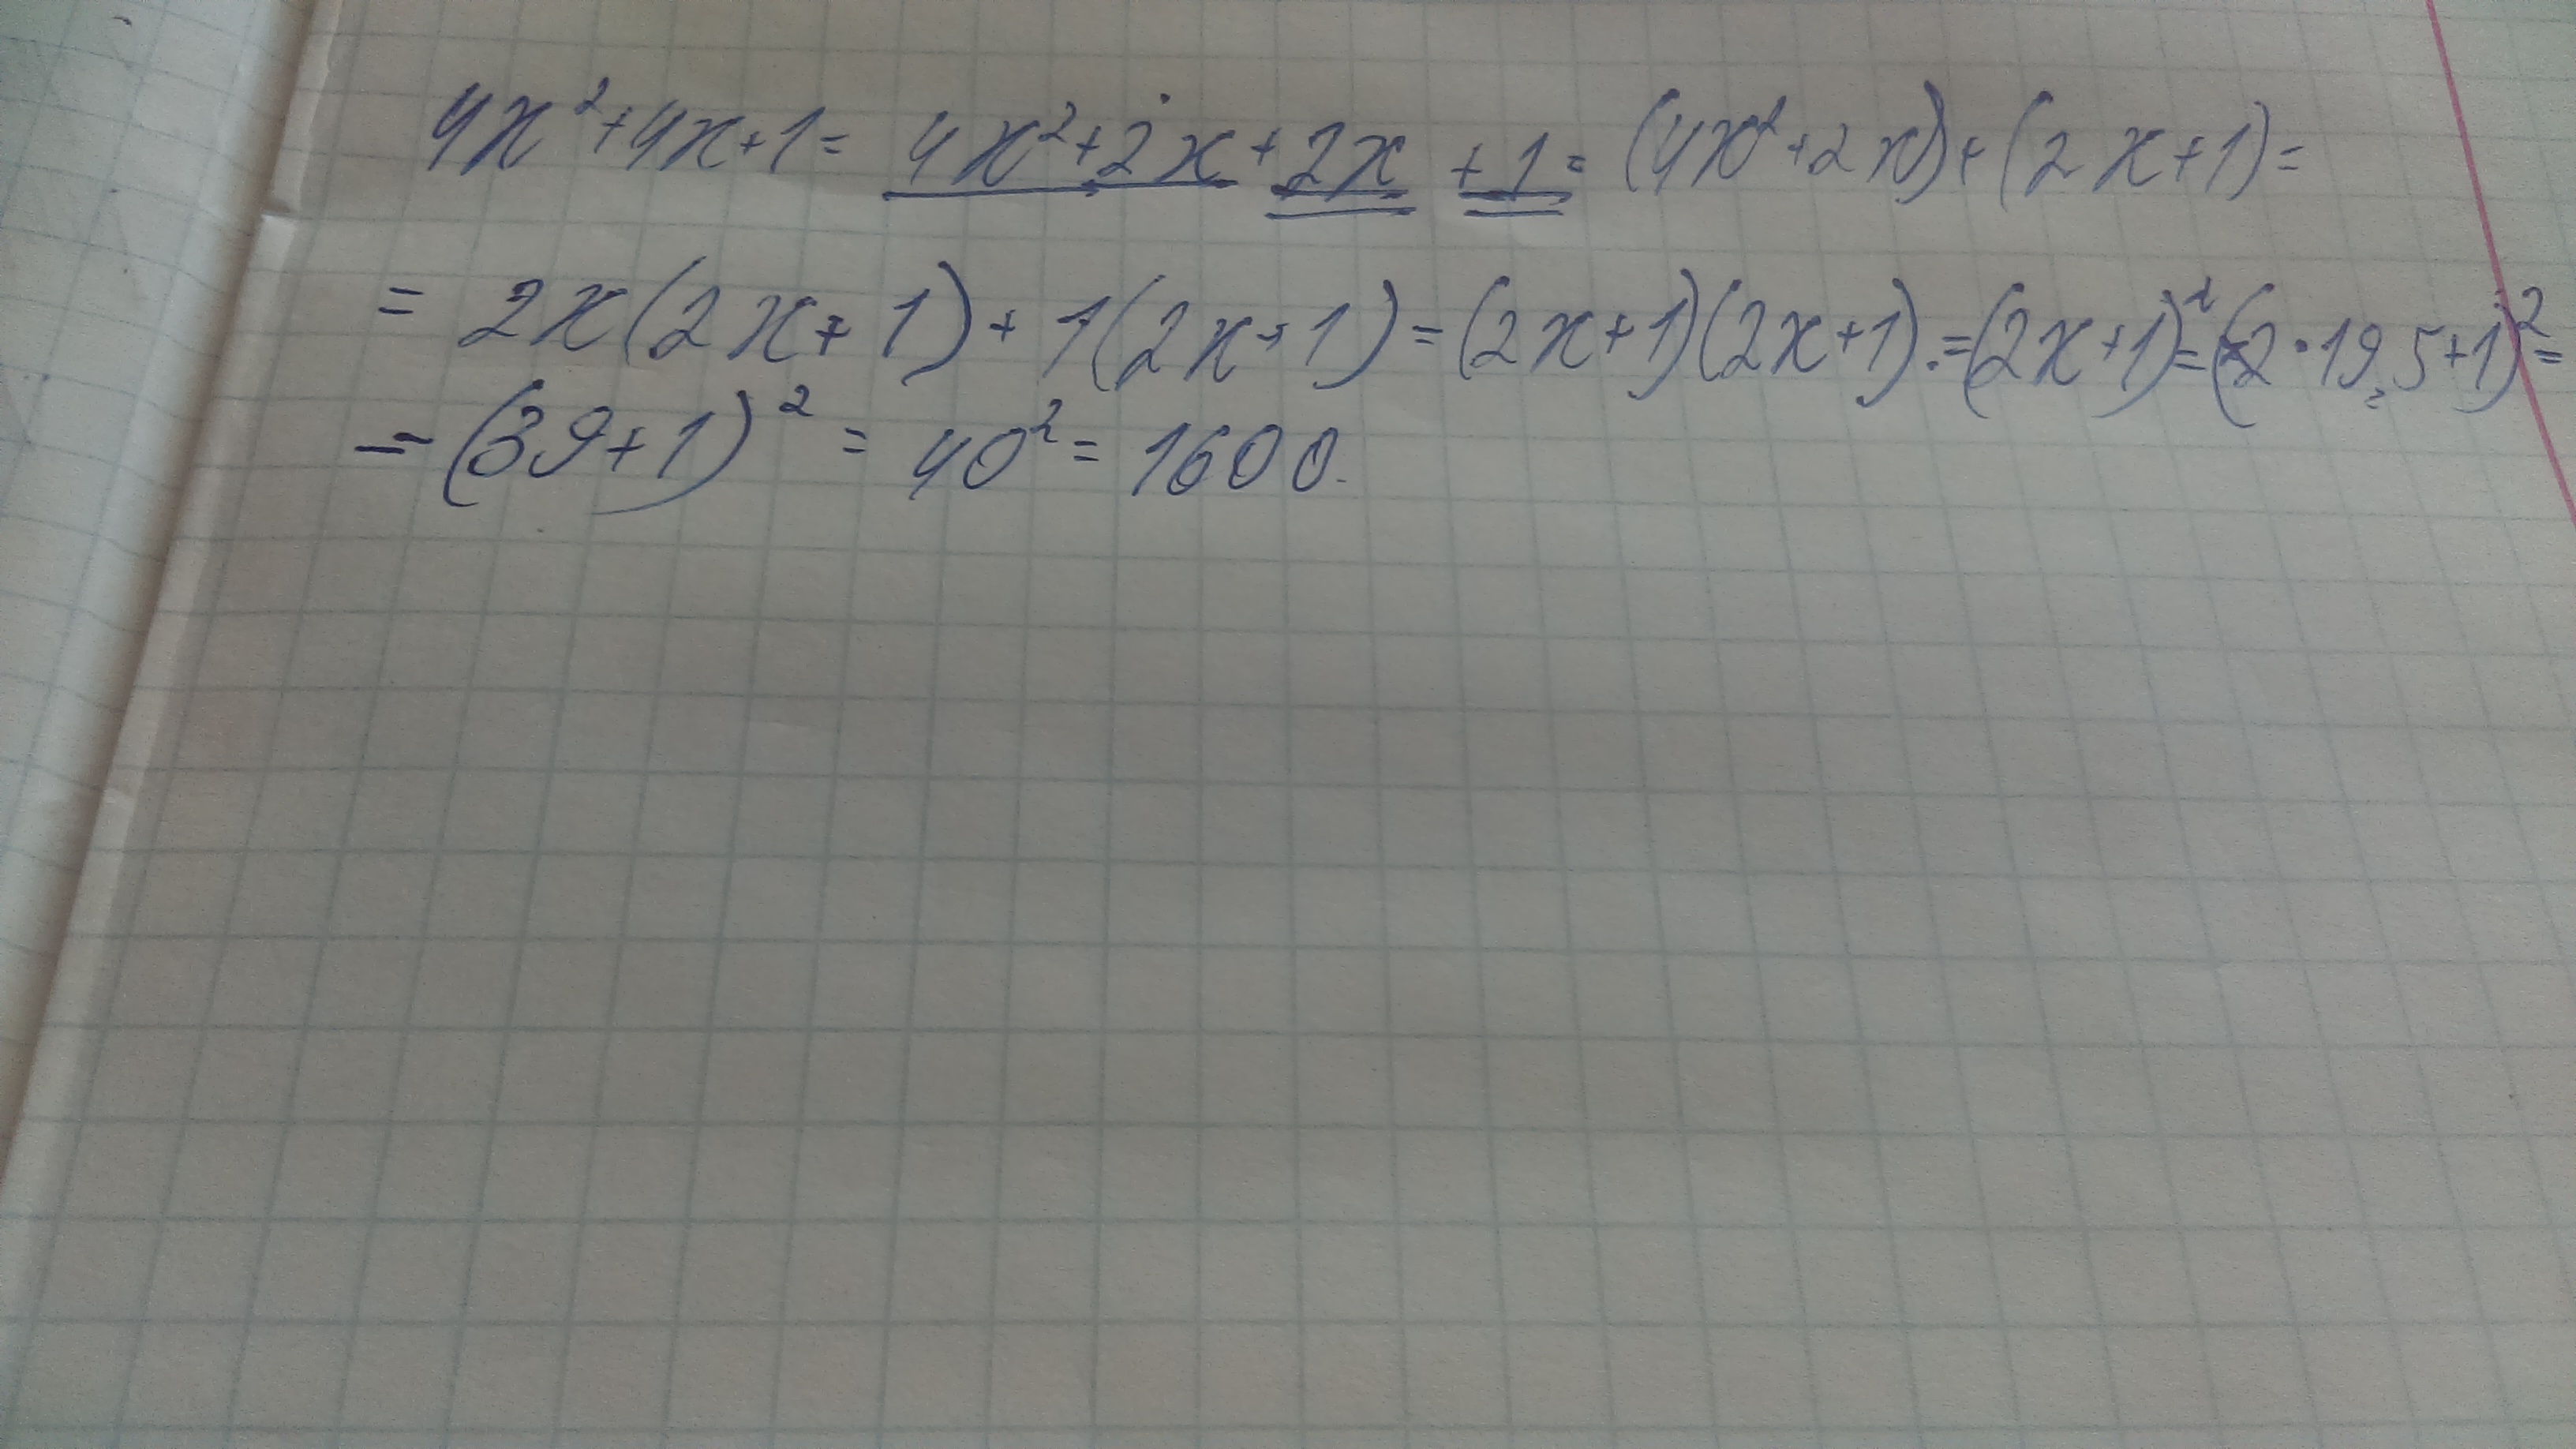 4x²+4x+1= 4x²+2x+2x+1= (4x²+2x)+(2x+1)=
= 2x(2x+1)+1(2x+1)=(2x+1)(2x+1).=(2x+1)²=(2·19,5+1)²=
=(39+1)²=40²=1600.